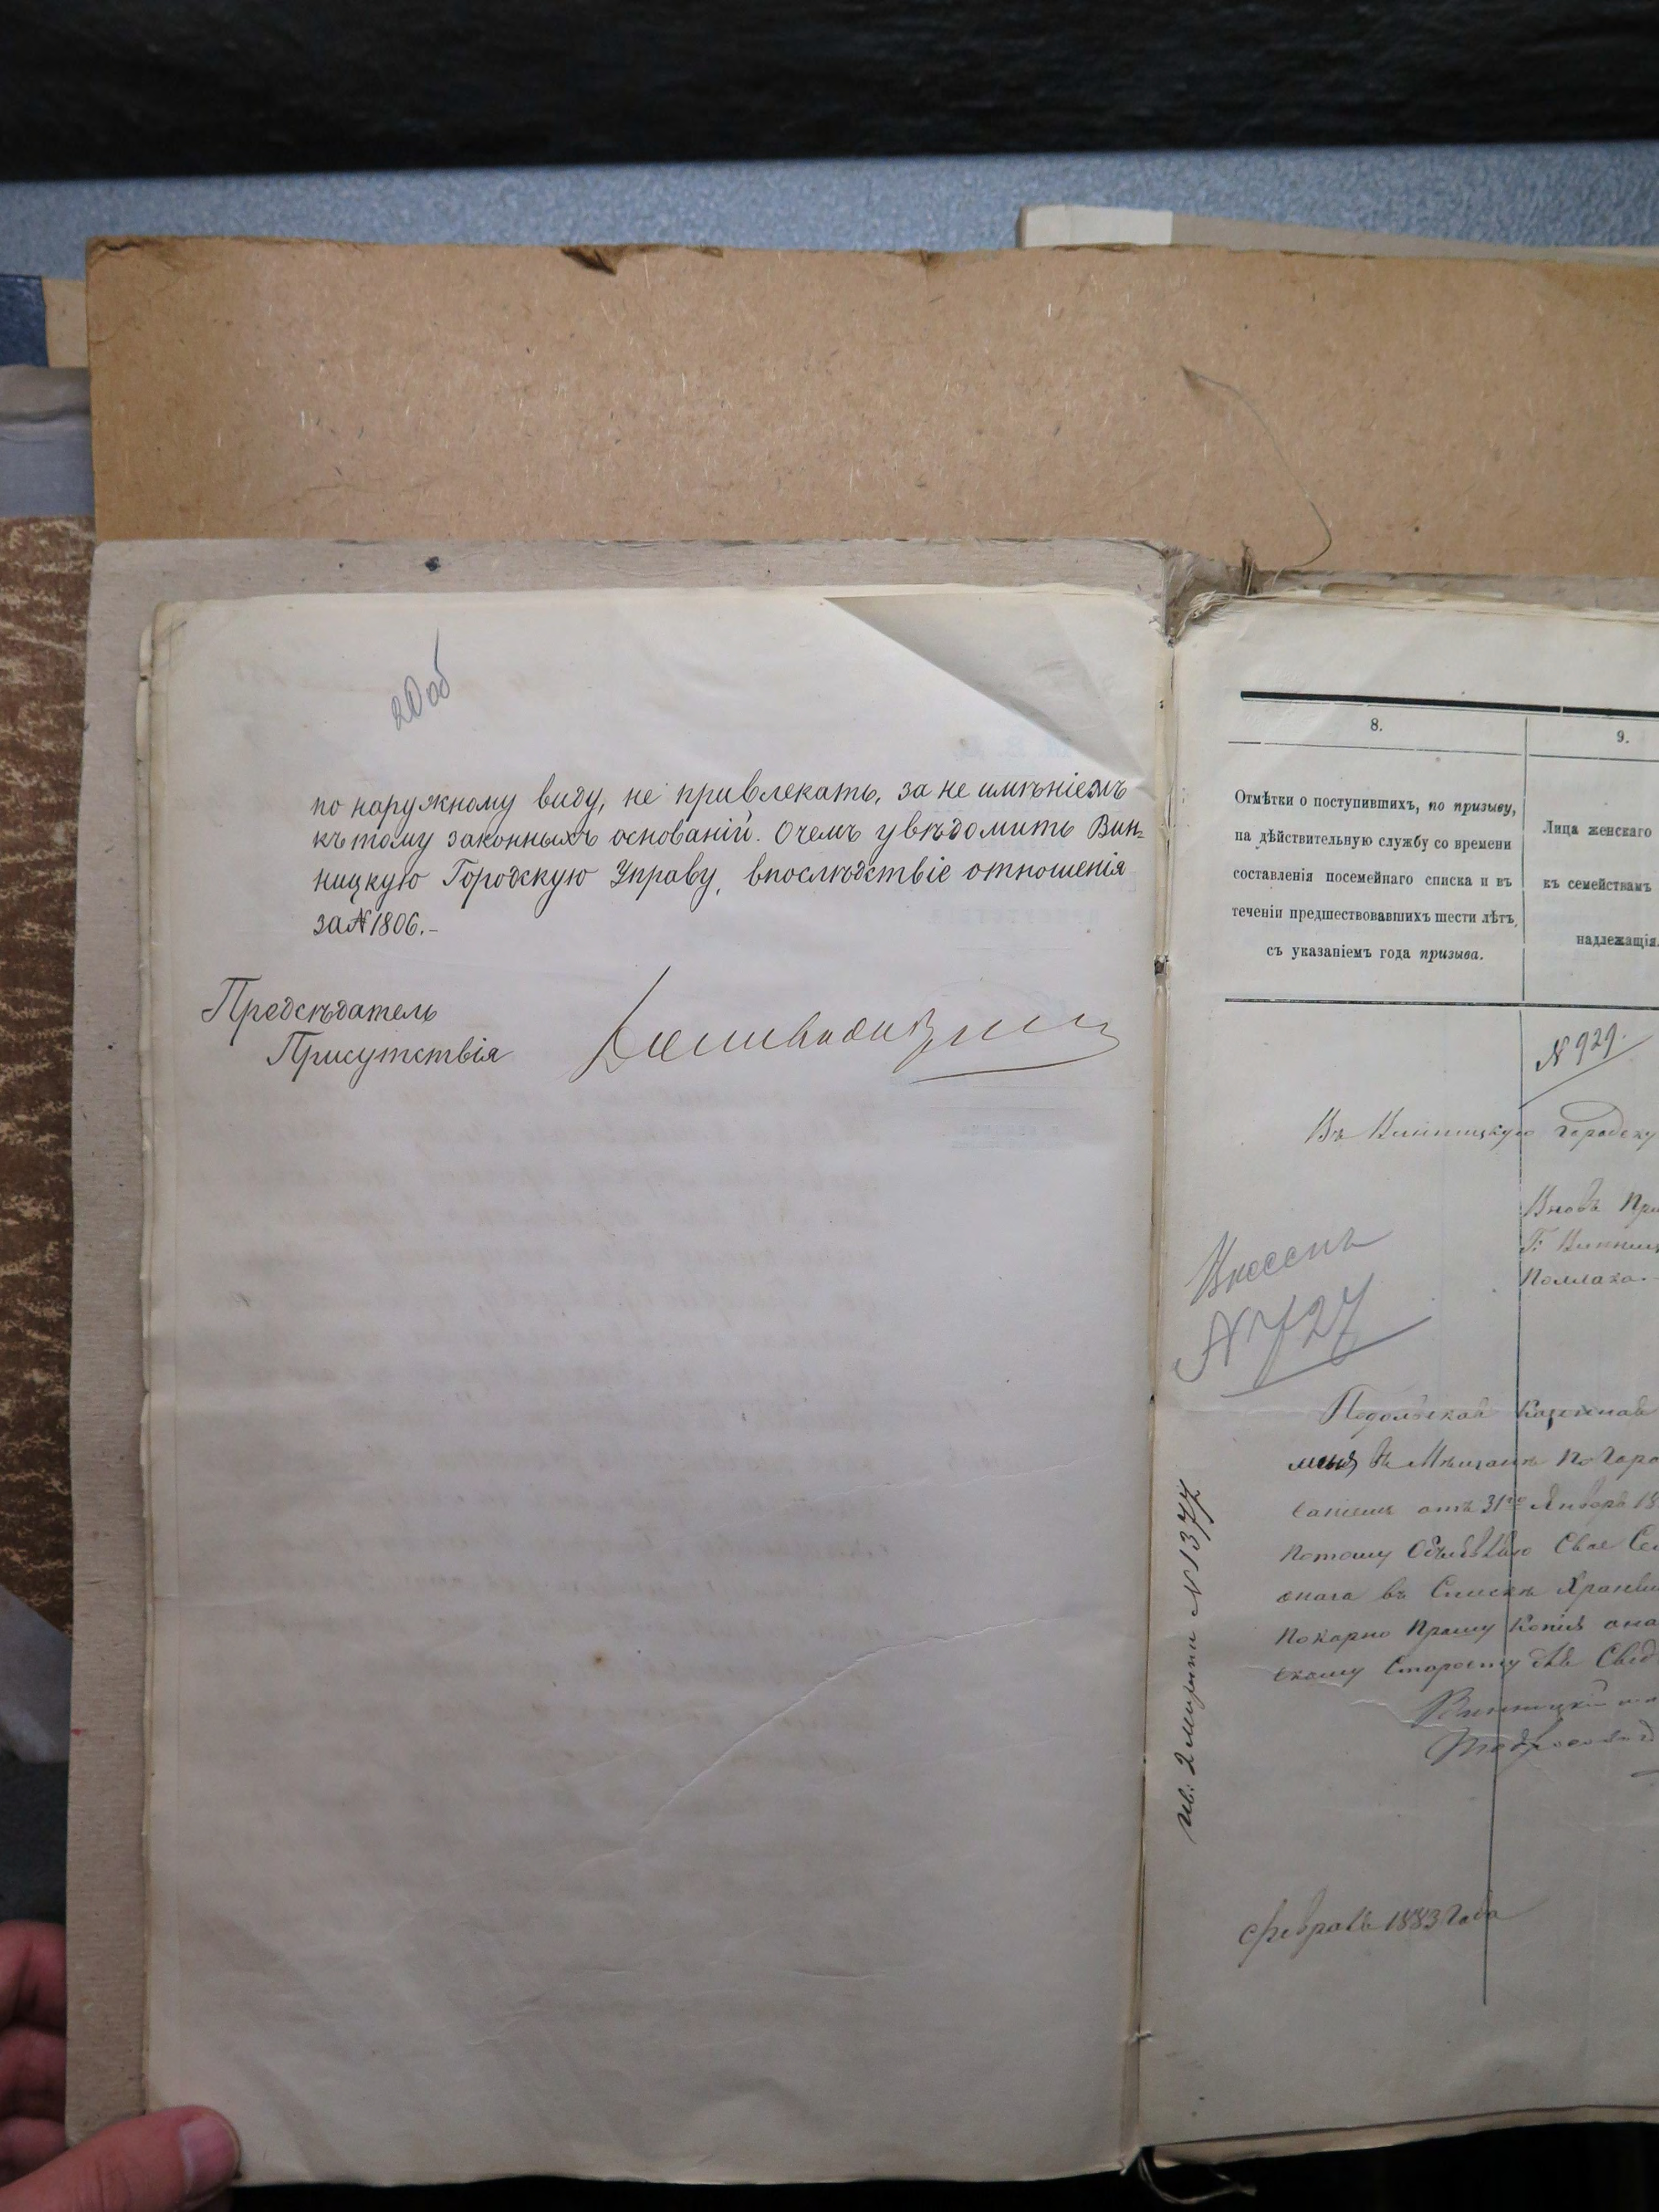 20 об
по наружному виду, не привлекать, за не имѣніемъ
къ тому законныхъ основаній. О чемъ увѣдомить Вин-
ницкую Городскую Управу, впослѣдствіе отношенія
за № 1806.-
Предсѣдатель
Присутствія
8.
9.
Отмѣтки о поступившихъ, по призыву,
на дѣйствительную службу со времени
составленія посемейнаго списка и въ
теченіи предшествовавшихъ шести лѣтъ,
съ указаніемъ года призыва.
Лица женскаго
къ семействамъ
надлежащія
№ 929.
Въ Винницкую Городску
Вновь При
Г. Винниц
Поллака.
Внесенъ
№ 727
Подольская Казенная
меня въ Мѣщане по Горо
отъ 31го Января 18
Потому Объявляю Свое Се
онаго въ Списки
Покорно Прошу Копію она
скому Старосту для Свед
Винницкій
2 Марта № 1377
Февраль 1883 Года